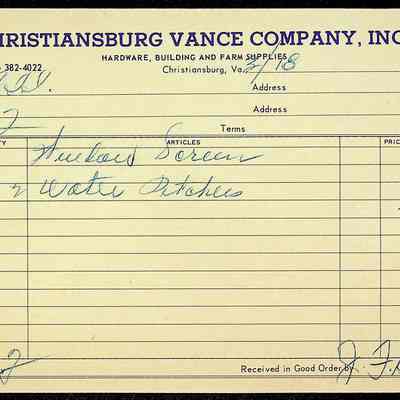 HRISTIANSBURG VANCE COMPANY, INC
HARDWARE, BUILDING AND FARM SUPPLIES
382-4022
Christiansburg, Va. 2/18
Address
2
Address
Terms
TY ARTICLES PRIC
Window Screen
2 Water Pitchers
2
Received in Good Order by J. F.